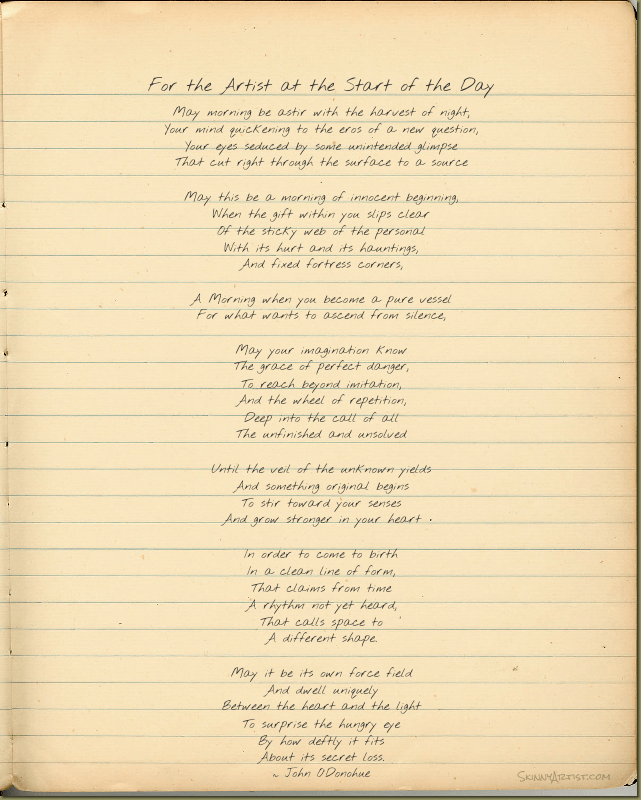 For the Artist at the Start of the Day
May morning be astir with the harvest of night,
Your mind quickening to the eros of a new question,
Your eyes seduced by some unintended glimpse
That cut right through the surface to a source
May this be a morning of innocent beginning,
When the gift within you slips clear
Of the sticky web of the personal
With its hurt and its hauntings,
And fixed fortress corners,
A Morning when you become a pure vessel
For what wants to ascend from silence,
May your imagination know
The grace of perfect danger,
To reach beyond imitation,
And the wheel of repetition,
Deep into the call of all
The unfinished and unsolved
Until the veil of the unknown yields
And something original begins
To stir toward your senses
And grow stronger in your heart.
In order to come to birth
In a clean line of form,
That claims from time
A rhythm not yet heard,
That calls space to
A different shape.
May it be its own force field
And dwell uniquely
Between the heart and the light
To surprise the hungry eye
By how deftly it fits
About its secret loss.
~ John O'Donohue
SKINNYARTIST.COM